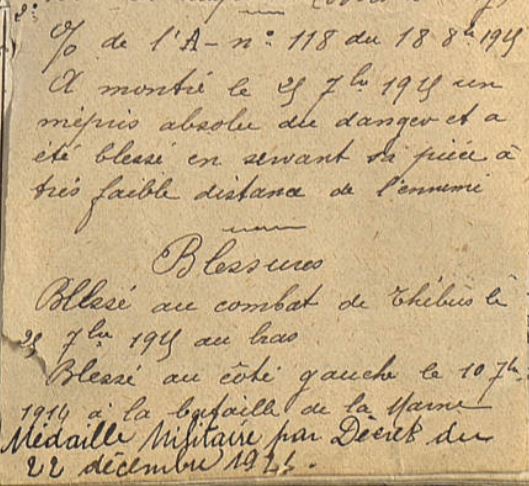 O/ de l'A - n° 118 du 18 8bre 1915
A montré le 25 7bre 1915 un
mépris absolu du danger et a
été blessé en servant sa pièce à
très faible distance de l'ennemi
Blessures
Blessé au combat de le
25 7bre 1915 au bras
Blessé au côté gauche le 10 7bre
1914 à la bataille de la Marne
Médaille Militaire par Décret du
22 décembre